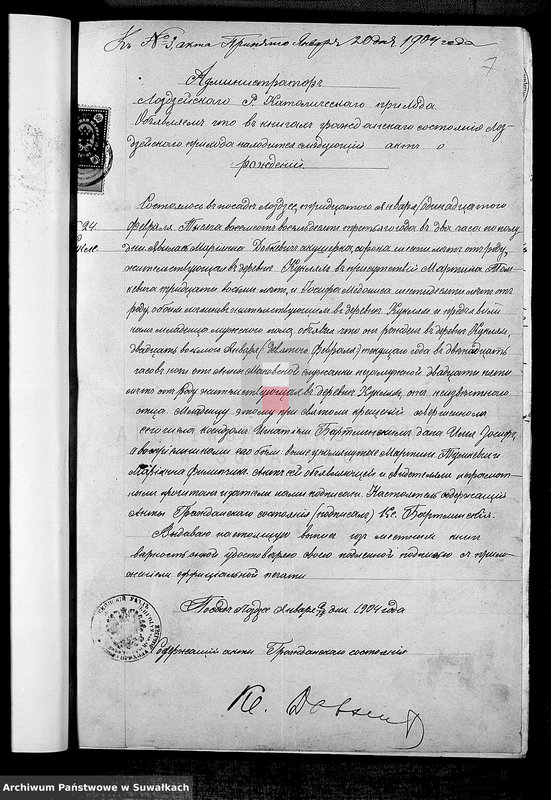 Къ № 3 акта Принято Января 20 дня 1904 года
7
Администраторъ
Лодзейскаго Р. Католическаго прихода
Объявляетъ что въ книгахъ гражданскаго состоянія Лод-
зейскаго прихода находится слѣдующій актъ о
рожденіи
Состоялось въ посадѣ Лодзее, тридцатаго Января/одинадцатаго
24
Февраля Тысяча восемьсотъ восемьдесятъ третьяго года въ два часа по полу
дни. Явилась Маріанна акушерка, сорока шести лѣтъ отъ роду,
жительствующая въ деревнѣ Кукляхъ въ присутствіи Мартина Том-
кевича тридцати восьми лѣтъ, и Іосифа шестидесяти лѣтъ отъ
роду, обоихъ жительствующихъ въ деревнѣ Кукляхъ и предъявила
намъ младенца мужескаго пола, объявляя что онъ рожденъ въ деревнѣ Кукляхъ,
двадцать восьмаго Января/девятаго Февраля/ текущаго года въ двенадцать
часовъ ночи отъ Анны Маковской служанки незамужней двадцати пяти
лѣтъ отъ роду жительствующая въ деревнѣ Кукляхъ, отъ неизвѣстнаго
отца. Младенцу этому при святомъ крещеніи совершенномъ
сего числа ксендзомъ Игнатіемъ Бартлинскимъ дано имя Іосифъ,
а воспріемниками его были вышеупомянутые Мартинъ Томкевичъ и
Маріанна Актъ сей объявляющей и свидѣтелямъ неграмот-
нымъ прочитанъ и нами подписанъ. Настоятель содержащій
Акты Гражданскаго состоянія (подписалъ) Кс. Бартлинскій.
Выдавая настоящую выпись изъ мѣстныхъ книгъ
вѣрность оной удостовѣряю своею подписью съ прило-
женіемъ оффиціальной печати
Посадъ Лодзее Января дня 1904 года
Содержащій акты Гражданскаго состоянія
Кс.
Archiwum Państwowe w Suwałkach